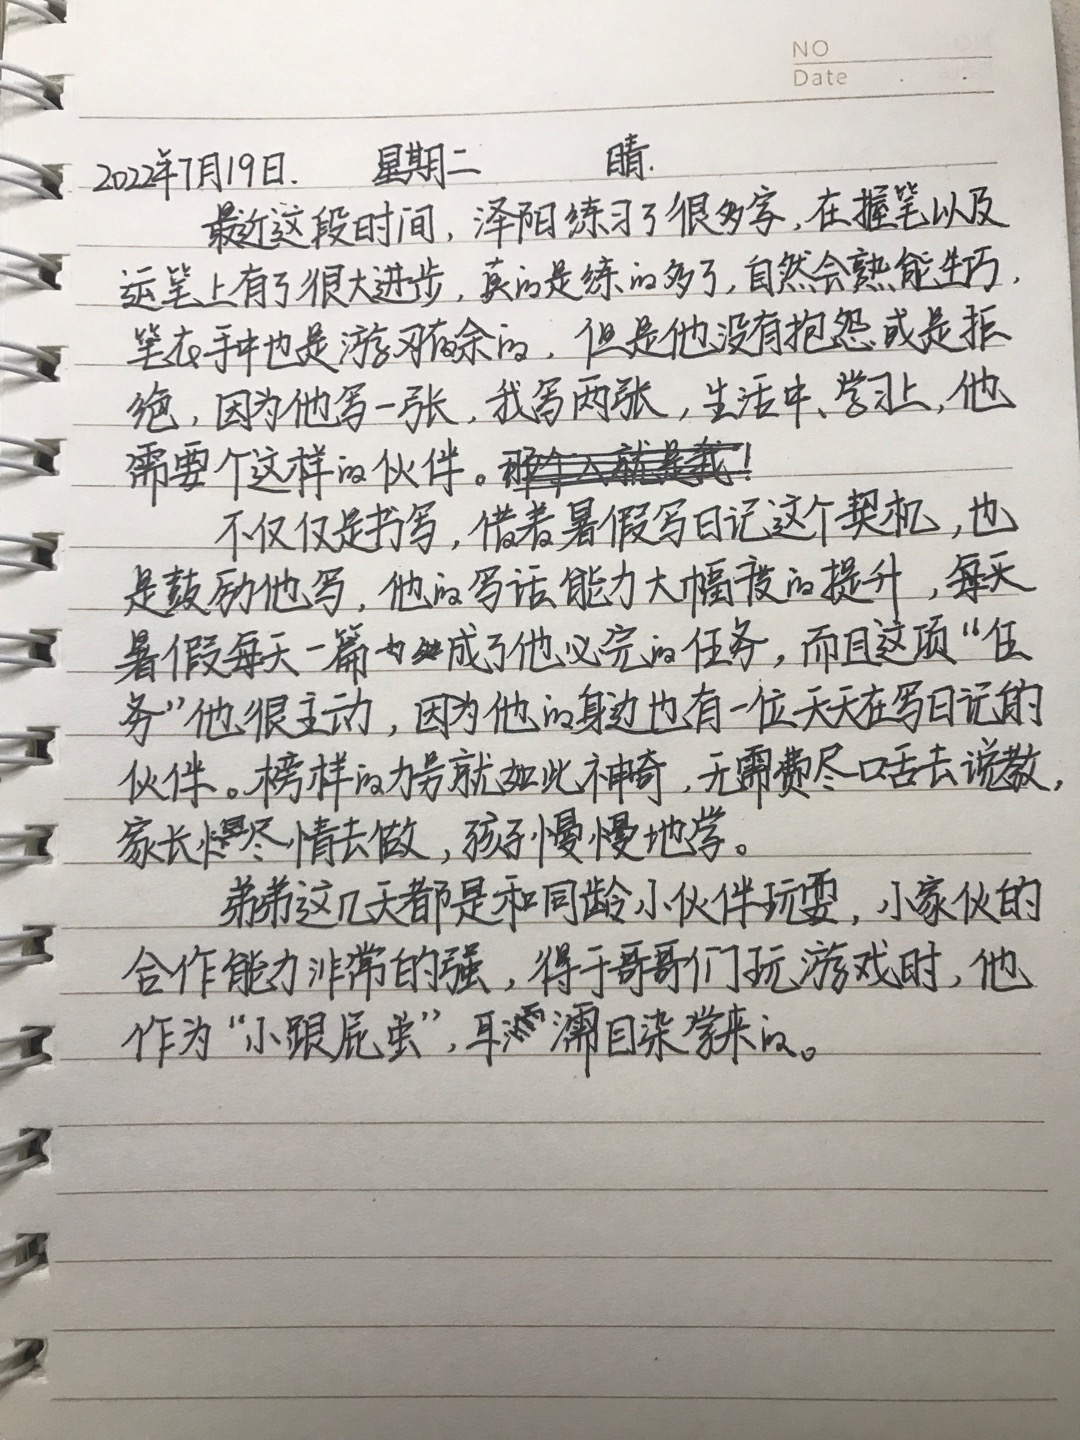 NO
Date
2022年7月19日. 星期二 晴.
最近这段时间,泽阳练习了很多字,在握笔以及
运笔上有了很大进步,真的是练的多了,自然会熟能生巧,
笔在手中也是游刃有余的,但是他没有抱怨或是拒
绝,因为他写一张,我写两张,生活中、学习上,他
需要个这样的伙伴。那个人就是我!
不仅仅是书写,借着暑假写日记这个契机,也
是鼓励他写,他的写话能力大幅度的提升,每天
暑假每天一篇也成了他必完的任务,而且这项“任
务”他很主动,因为他的身边也有一位天天在写日记的
伙伴。榜样的力量就如此神奇,无需费尽口舌去说教,
家长尽情去做,孩子慢慢地学。
弟弟这几天都是和同龄小伙伴玩耍,小家伙的
合作能力非常的强,得于哥哥们玩游戏时,他
作为“小跟屁虫”,耳濡目染学来的。